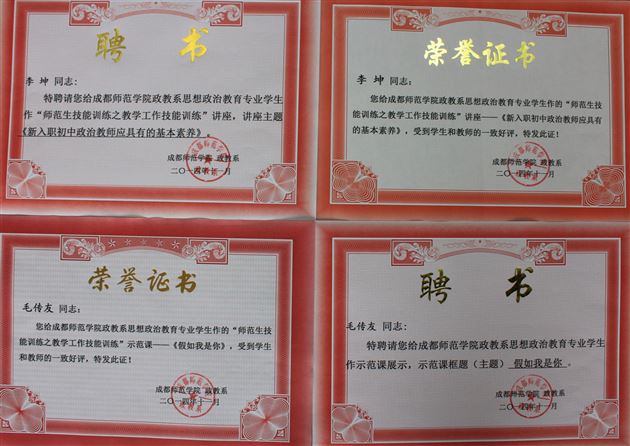 聘 书
李 坤 同志：
特聘请您给成都师范学院政教系思想政治教育专业学生
作“师范生技能训练之教学工作技能训练”讲座，讲座主题
《新入职初中政治教师应具有的基本素养》。
成都师范学院 政教系
二〇一四年十一月
荣誉证书
李 坤 同志：
您给成都师范学院政教系思想政治教育专业学生作的“师范生技
能训练之教学工作技能训练”讲座——《新入职初中政治教师应具有
的基本素养》，受到学生和教师的一致好评，特发此证！
成都师范学院 政教系
二〇一四年十一月
荣誉证书
毛传友 同志：
您给成都师范学院政教系思想政治教育专业学生作的“师范生技
能训练之教学工作技能训练”示范课——《假如我是你》，受到学生
和教师的一致好评，特发此证！
成都师范学院 政教系
二〇一四年十一月
聘 书
毛传友 同志：
特聘请您给成都师范学院政教系思想政治教育专业学生
作示范课展示，示范课框题（主题） 假如我是你 。
成都师范学院 政教系
二〇一四年十一月